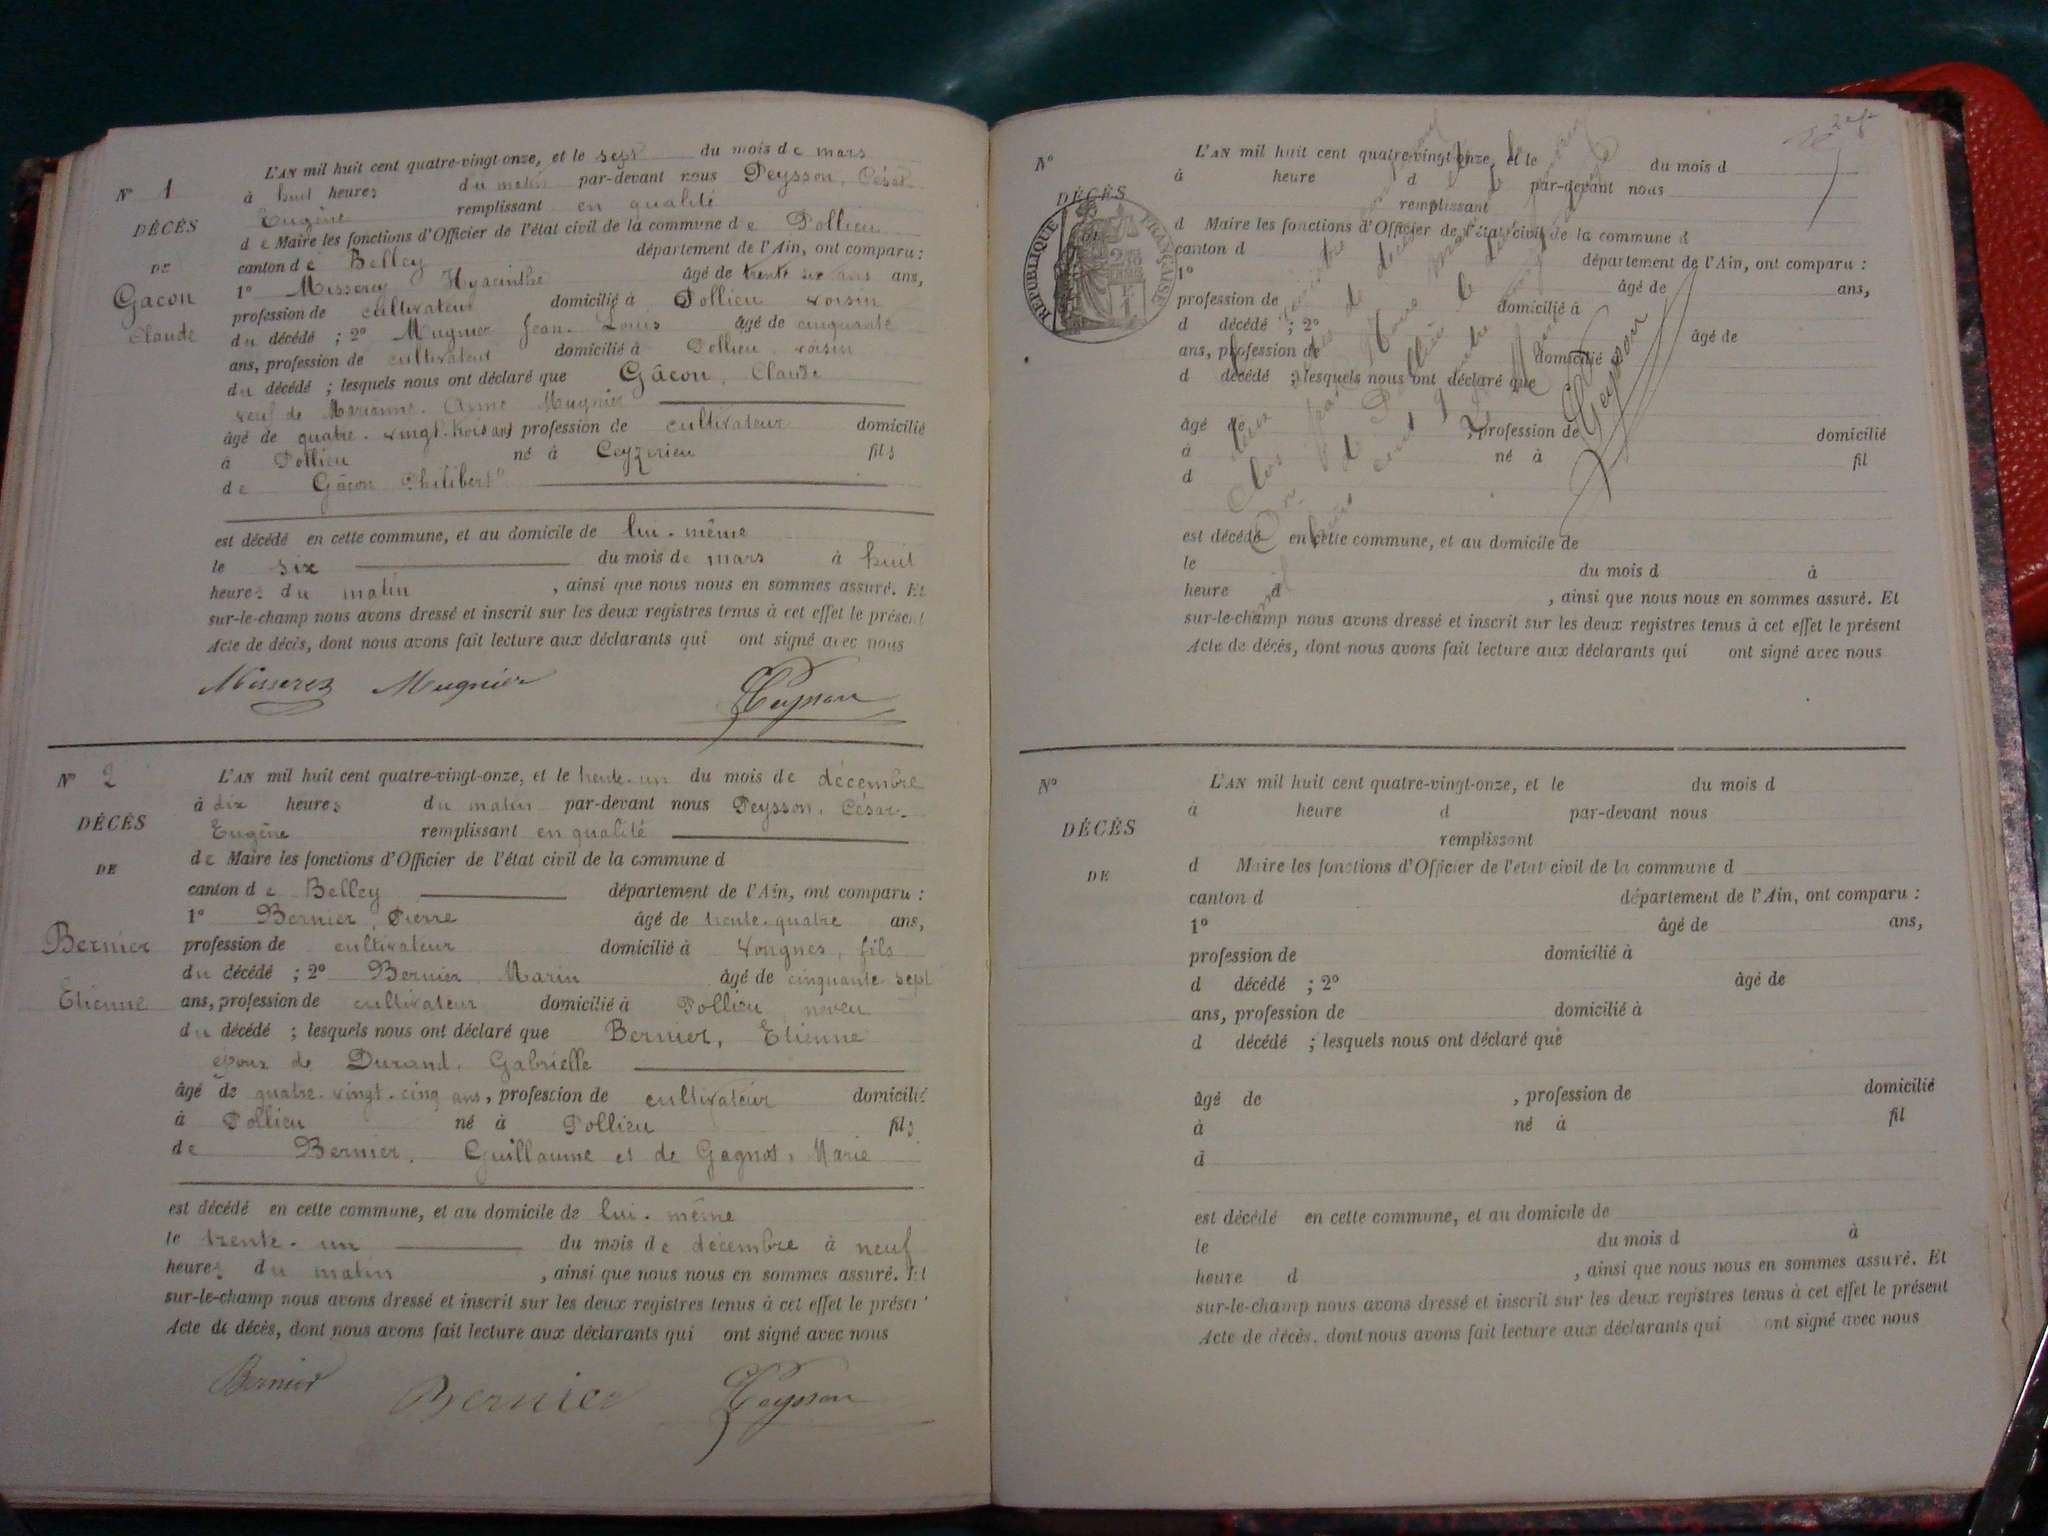 L'AN mil huit cent quatre-vingt-onze, et le sept du mois de mars
N° 1 à huit heures du matin par-devant nous Peysson, César
Eugène remplissant en qualité
DÉCÈS de Maire les fonctions d'Officier de l'état civil de la commune de Pollieu
DE canton de Belley département de l'Ain, ont comparu :
1° Misserey Hyacinthe âgé de trente six ans ans,
Gacon profession de cultivateur domicilié à Pollieu voisin
Claude du décédé ; 2° Mugnier Jean-Louis âgé de cinquante
ans, profession de cultivateur domicilié à Pollieu voisin
du décédé ; lesquels nous ont déclaré que Gâcon, Claude
veuf de Marianne-Anne Mugnier
âgé de quatre-vingt-trois ans profession de cultivateur domicilié
à Pollieu né à Ceyzerieu fils
de Gâcon Philibert
est décédé en cette commune, et au domicile de lui-même
le six du mois de mars à huit
heures du matin , ainsi que nous nous en sommes assuré. Et
sur-le-champ nous avons dressé et inscrit sur les deux registres tenus à cet effet le présent
Acte de décès, dont nous avons fait lecture aux déclarants qui ont signé avec nous
Misserez Mugnier Peysson
N° 2 L'AN mil huit cent quatre-vingt-onze, et le trente-un du mois de décembre
à dix heures du matin par-devant nous Peysson, César-
DÉCÈS Eugène remplissant en qualité
de Maire les fonctions d'Officier de l'état civil de la commune d
DE canton de Belley département de l'Ain, ont comparu :
1° Bernier, Pierre âgé de trente-quatre ans,
Bernier profession de cultivateur domicilié à Vongnes, fils
du décédé ; 2° Bernier Marin âgé de cinquante-sept
Etienne ans, profession de cultivateur domicilié à Pollieu, neveu
du décédé ; lesquels nous ont déclaré que Bernier, Etienne
époux de Durand, Gabrielle
âgé de quatre-vingt-cinq ans, profession de cultivateur domicilié
à Pollieu né à Pollieu fils
de Bernier, Guillaume et de Gagnot, Marie
est décédé en cette commune, et au domicile de lui-même
le trente-un du mois de décembre à neuf
heures du matin , ainsi que nous nous en sommes assuré. Et
sur-le-champ nous avons dressé et inscrit sur les deux registres tenus à cet effet le présent
Acte de décès, dont nous avons fait lecture aux déclarants qui ont signé avec nous
Bernier Bernier Peysson
N° L'AN mil huit cent quatre-vingt-onze, et le du mois d
à heure d par-devant nous
DÉCÈS remplissant
RÉPUBLIQUE FRANÇAISE
d Maire les fonctions d'Officier de l'état civil de la commune d
canton d département de l'Ain, ont comparu :
1° âgé de ans,
profession de domicilié à
d décédé ; 2° âgé de
ans, profession de domicilié à
d décédé ; lesquels nous ont déclaré que
âgé de , profession de domicilié
à né à fil
d
est décédé en cette commune, et au domicile de
le du mois d à
heure d , ainsi que nous nous en sommes assuré. Et
sur-le-champ nous avons dressé et inscrit sur les deux registres tenus à cet effet le présent
Acte de décès, dont nous avons fait lecture aux déclarants qui ont signé avec nous
Peysson
N° L'AN mil huit cent quatre-vingt-onze, et le du mois d
à heure d par-devant nous
DÉCÈS remplissant
d Maire les fonctions d'Officier de l'état civil de la commune d
DE canton d département de l'Ain, ont comparu :
1° âgé de ans,
profession de domicilié à
d décédé ; 2° âgé de
ans, profession de domicilié à
d décédé ; lesquels nous ont déclaré que
âgé de , profession de domicilié
à né à fil
d
est décédé en cette commune, et au domicile de
le du mois d à
heure d , ainsi que nous nous en sommes assuré. Et
sur-le-champ nous avons dressé et inscrit sur les deux registres tenus à cet effet le présent
Acte de décès, dont nous avons fait lecture aux déclarants qui ont signé avec nous